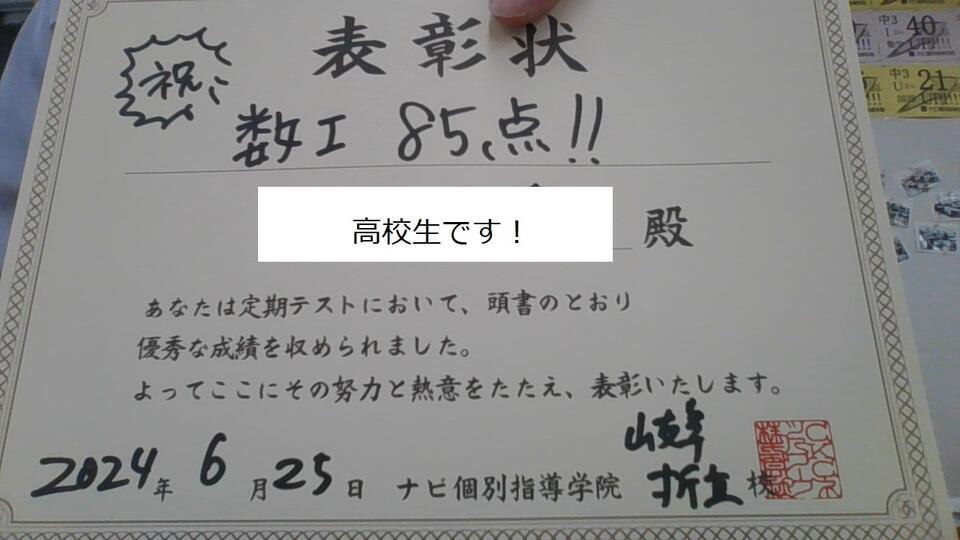 表彰状
祝
数I 85点!!
高校生です！
殿
あなたは定期テストにおいて、頭書のとおり
優秀な成績を収められました。
よってここにその努力と熱意をたたえ、表彰いたします。
2024年6月25日 ナビ個別指導学院 校
中3
40
中3
21
UP!!!